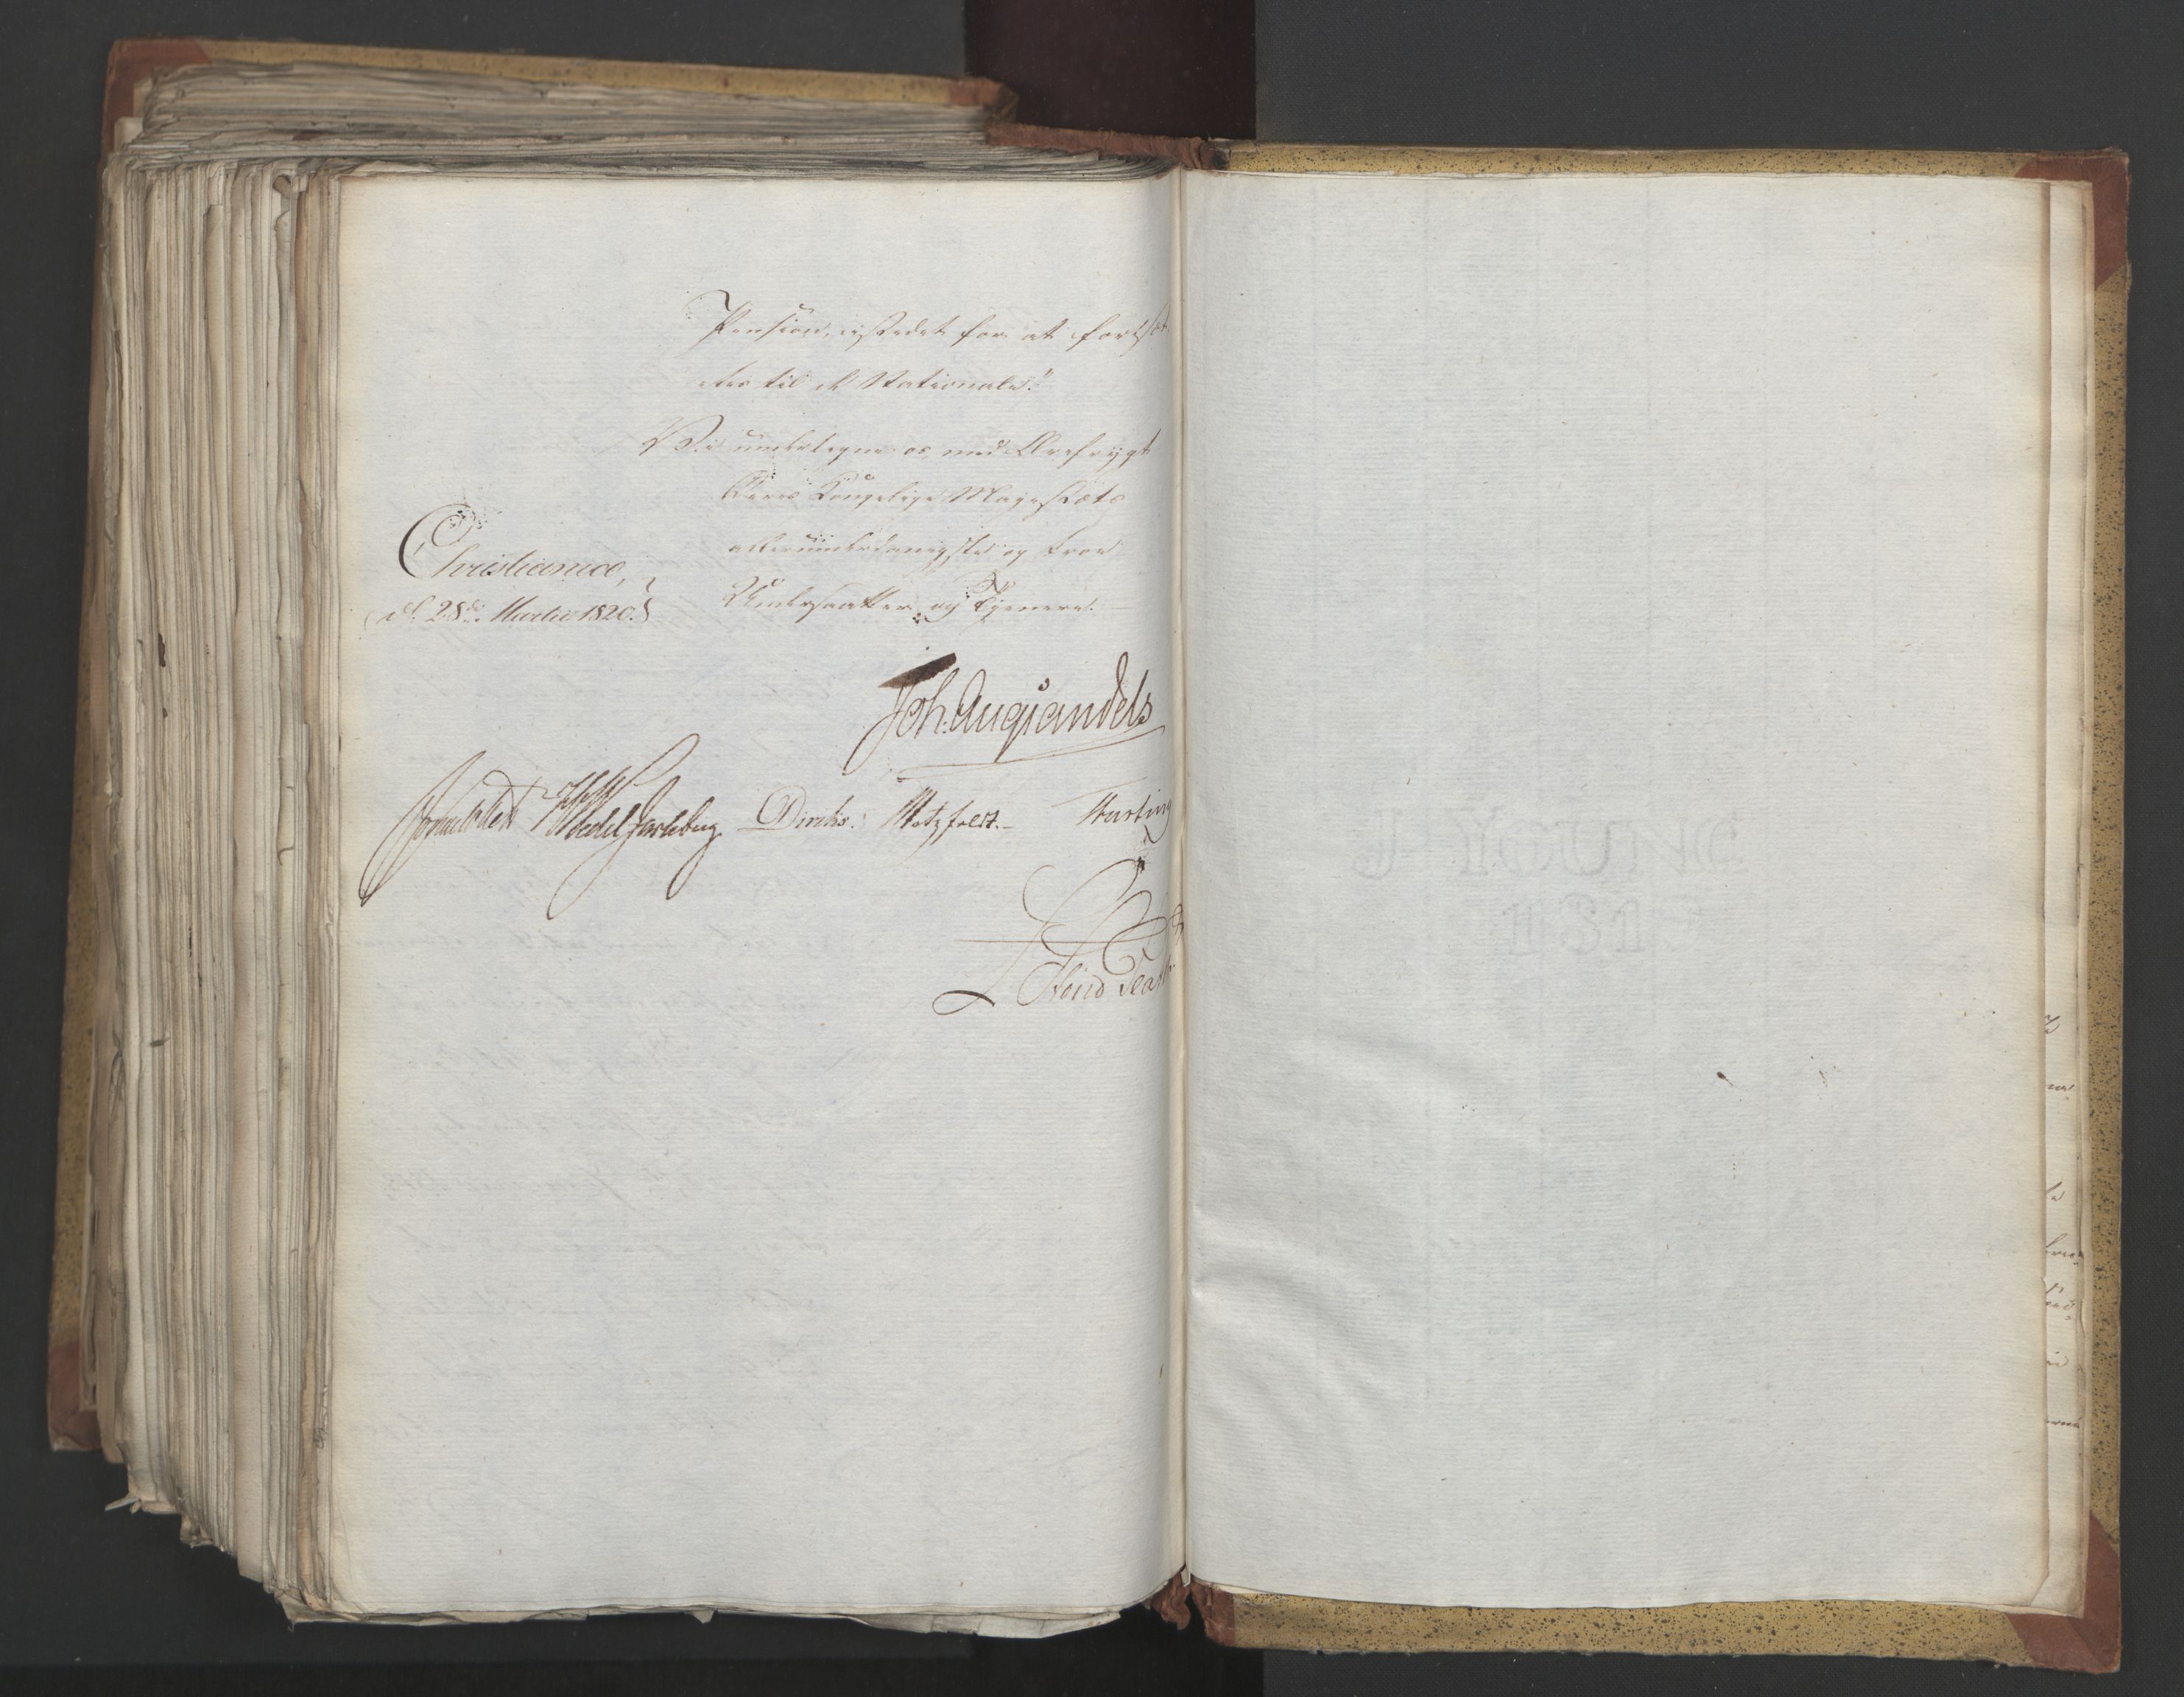 Pension, istedet for at forsæt
tes til de Nationale."
Vi undertegne os, med Ærefrygt
Deres Kongelige Majestæts
allerunderdanigste og troe
Undersaatter og Tjenere.
Christiania,
d. 28de Martii 1820.
Joh. Aug Sandels
Sommerhielm HWedel Jarlsberg Diriks. Motzfeldt. Harting
J WHOUNG
181